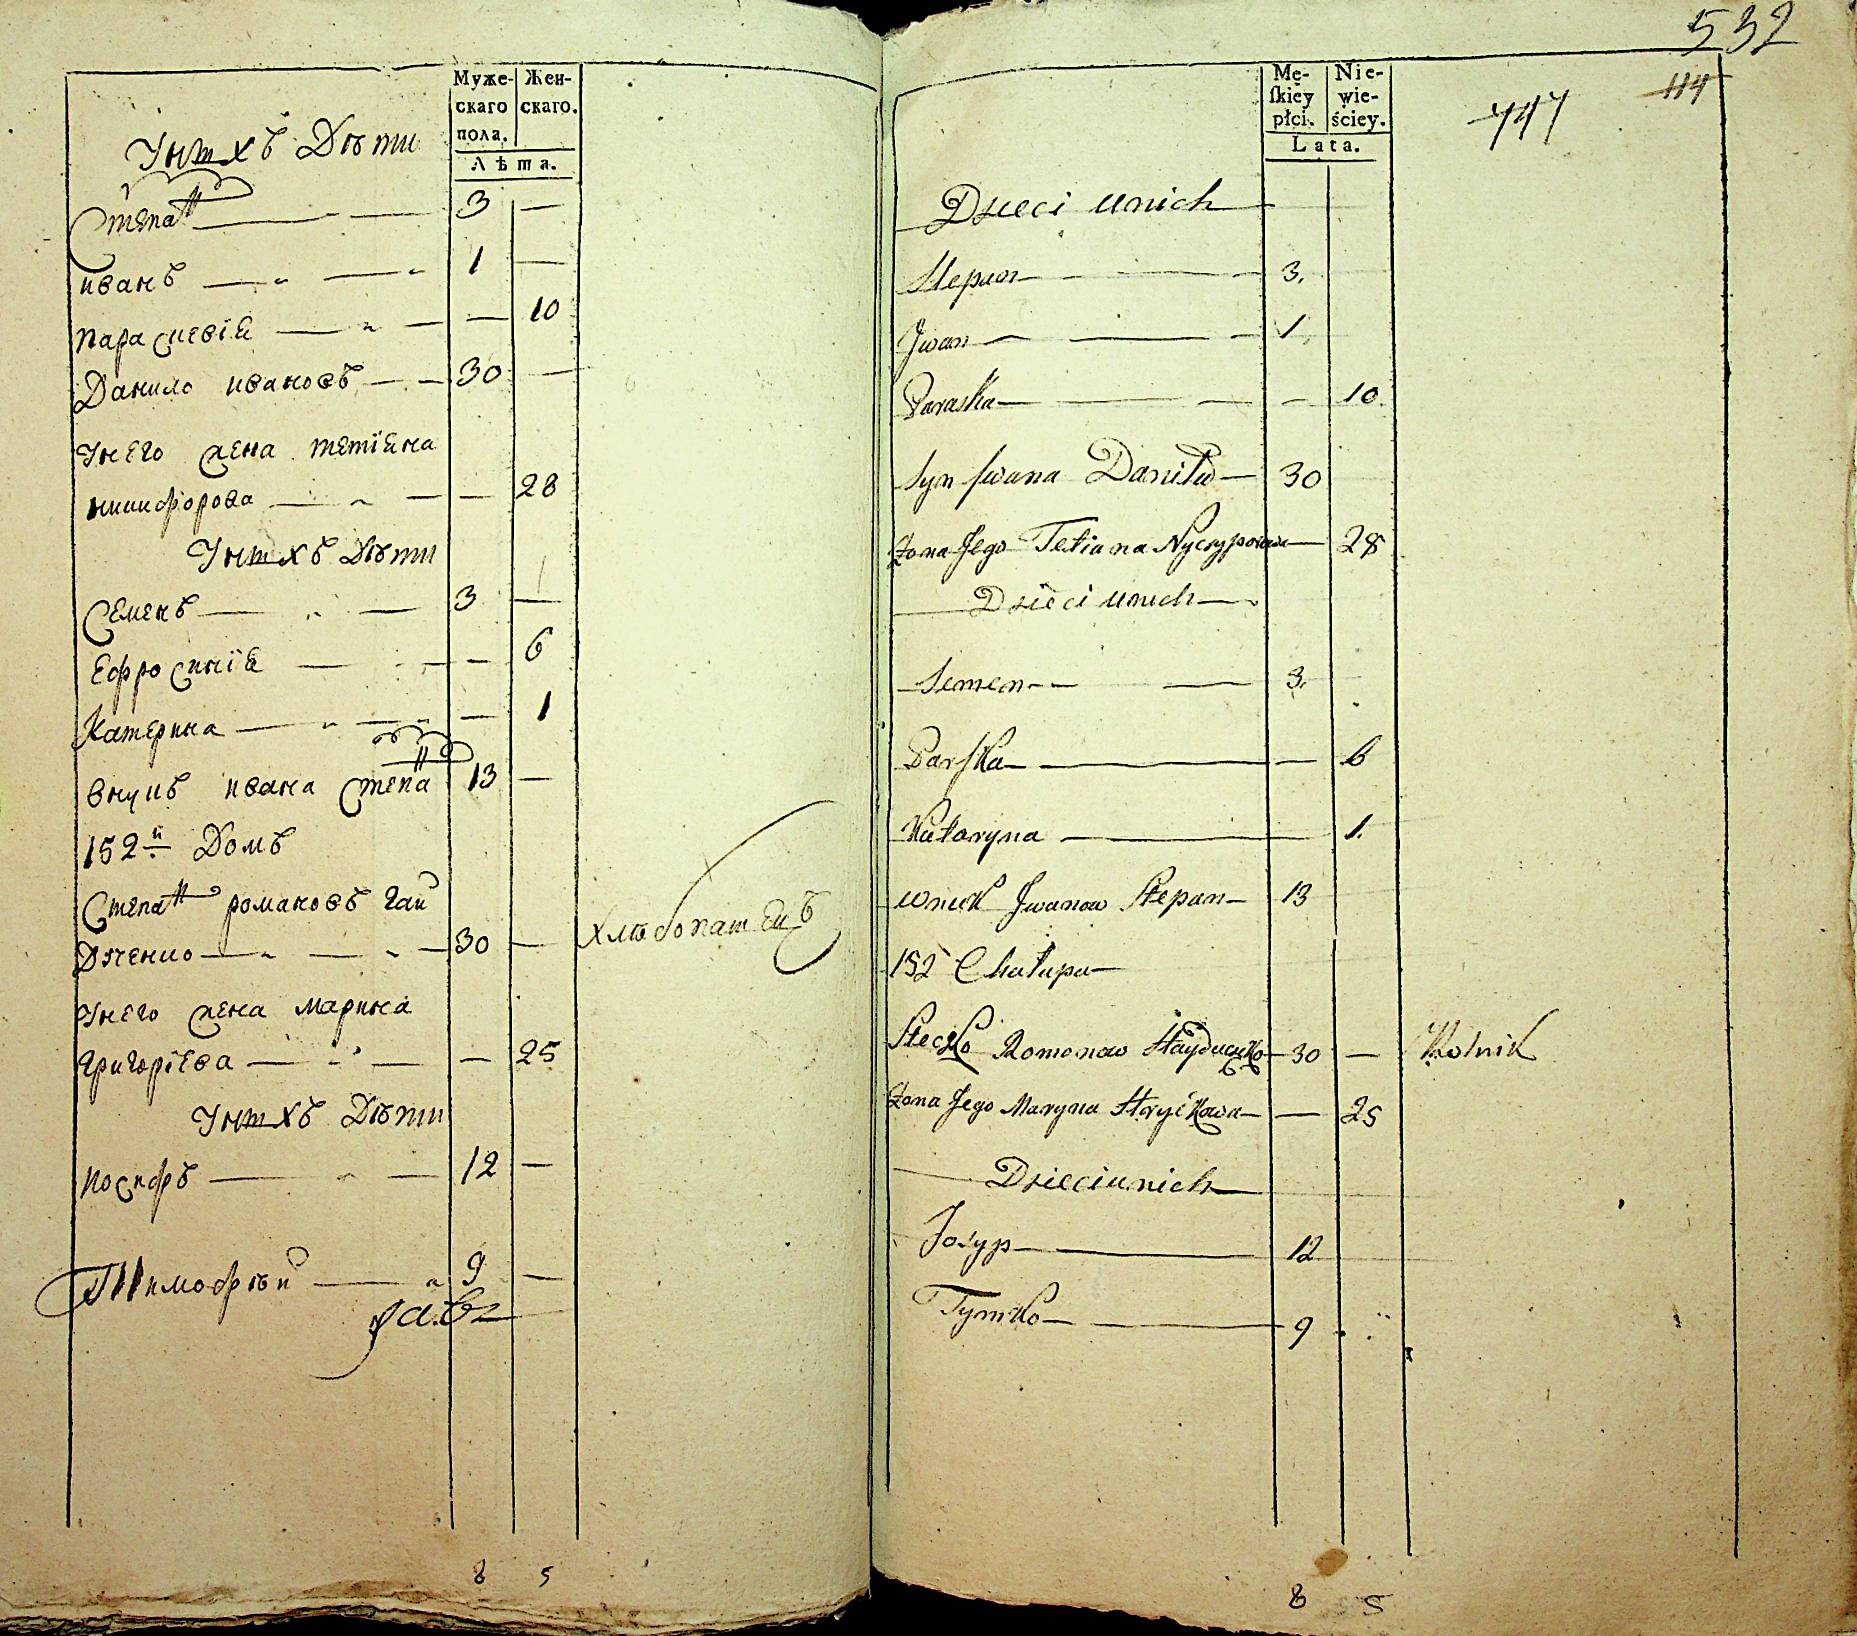 Муже-
скаго
пола.
Жен-
скаго.
Лѣта.
Унихъ Дѣти
Степан 3 —
иванъ 1 —
параскевія — 10
Данило ивановъ 30 —
Унего жена тетіана
никифорова — 28
Унихъ Дѣти
Семенъ 3 —
Ефросинія — 6
Катерина — 1
внукъ ивана Степан 13 —
152й Домъ
Степан романовъ гай
Дученко 30 — Хлебопашецъ
Унего жена марина
григоріева — 25
Унихъ Дѣти
иосифъ 12 —
Тимофѣй 9 —
8 5
532
114
Mę-
skiey
płci.
Nie-
wie-
ściey.
Lata.
Dzieci unich
Stepan 3.
Jwan 1
Paraska — 10
Syn Jwana Daniło 30
Zona Jego Tetiana Nyczyporowa 28
Dzieci unich
Semen 3.
Parska — 6
Kataryna 1.
wnuk Jwanow Stepan 13
152 Chałupa
Stecko Romanow Hayduczko 30 — Rolnik
Zona Jego Maryna Hryćkowa — 25
Dzieci unich
Josyp 12
Tymko 9
8 5